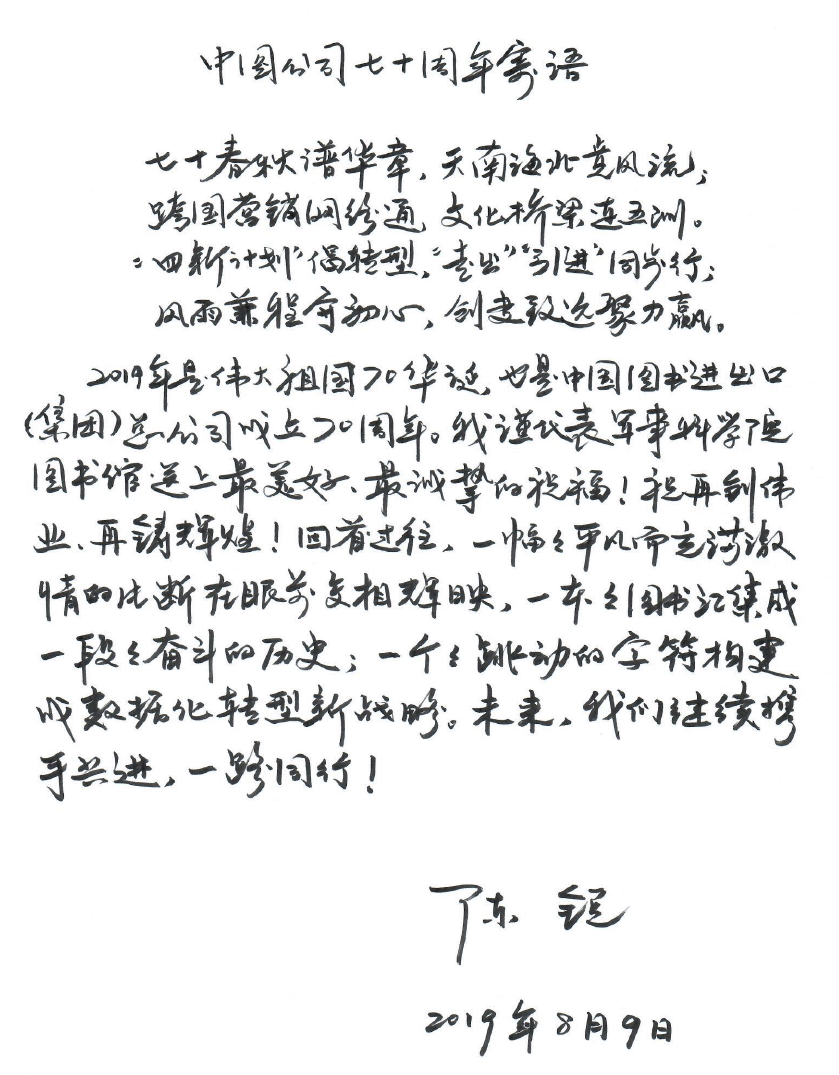 中图公司七十周年寄语
七十春秋谱华章，天南海北竞风流；
跨国营销网络通，文化桥梁连五洲。
“四新计划”促转型，“走出”“引进”同步行；
风雨兼程守初心，创业致远聚力赢。
2019年是伟大祖国70华诞，也是中国图书进出口
（集团）总公司成立70周年。我谨代表军事科学院
图书馆送上最美好、最诚挚的祝福！祝再创伟
业、再铸辉煌！回首过往，一幅々平凡而充满激
情的片断在眼前交相辉映，一本々图书汇集成
一段々奋斗的历史；一个々跳动的字符构建
成数据化转型新战略。未来，我们继续携
手共进，一路同行！
陈锐
2019年8月9日